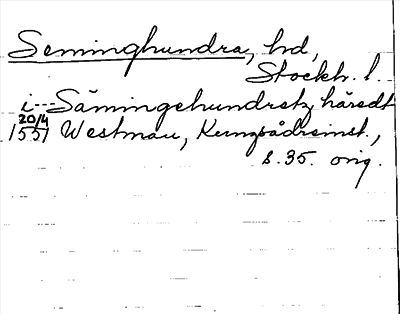 Seminghundra, hd,
Stockh. l.
i --- Sämingehundretz häredt
20/4
1551 Westmau, Kungsådreinst.,
s. 35. orig.